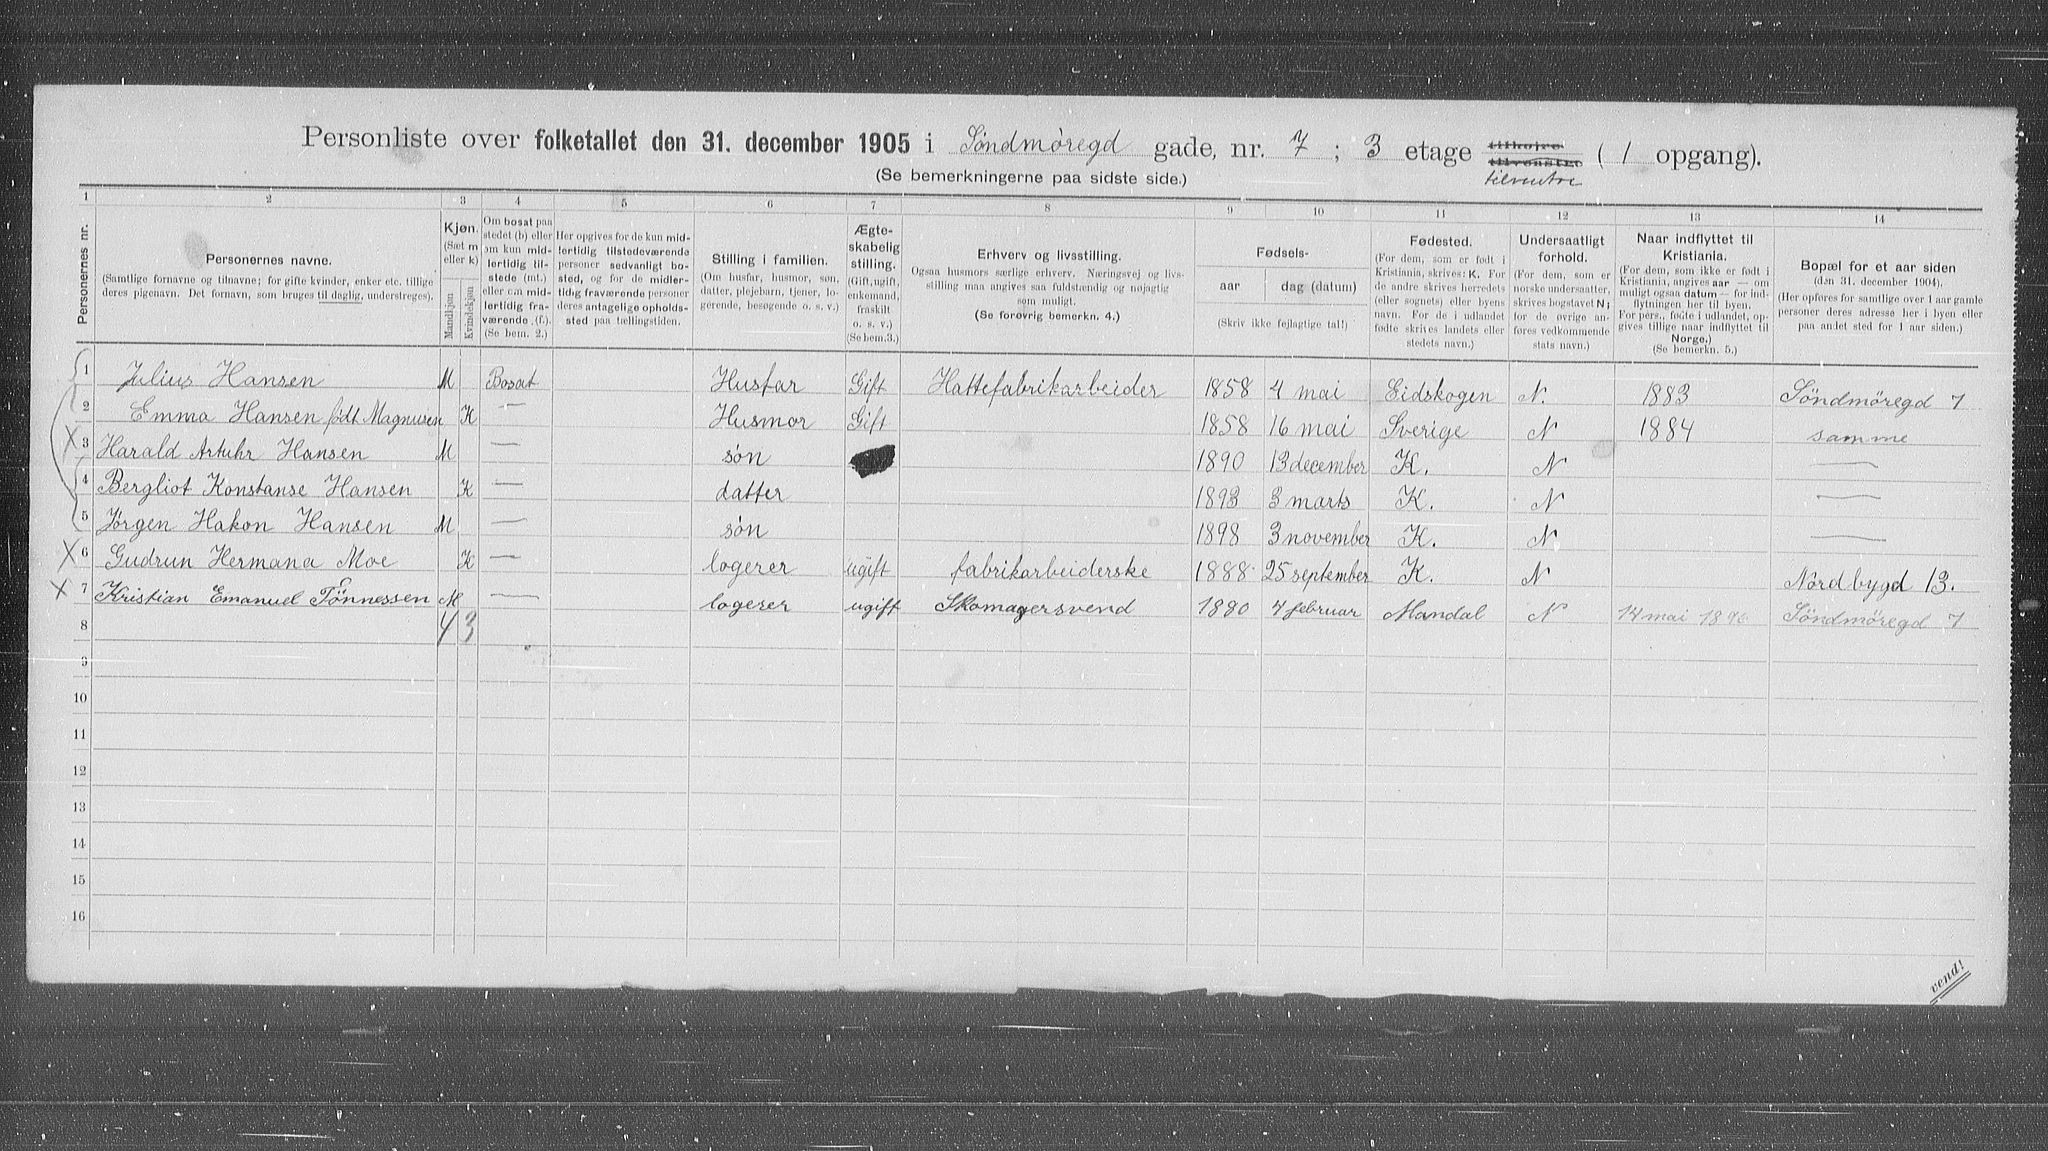 Personliste over folketallet den 31. december 1905 i Söndmöregd gade, nr. 7 ; 3 etage tilhøjre tilvenstre ( 1 opgang).
(Se bemerkningerne paa sidste side.) tilvenstre
1 2 3 4 5 6 7 8 9 10 11 12 13 14
Personernes nr.
Personernes navne.
(Samtlige fornavne og tilnavne; for gifte kvinder, enker etc. tillige
deres pigenavn. Det fornavn, som bruges til daglig, understreges).
Kjøn.
(Sæt m
eller k)
Mandkjøn
Kvindekjøn
Om bosat paa
stedet (b) eller
om kun mid-
lertidig til-
stede (mt.)
eller om mid-
lertidig fra-
værende (f.).
(Se bem. 2.)
Her opgives for de kun mid-
lertidig tilstedeværende
personer sedvanligt bo-
sted, og for de midler-
tidig fraværende personer
deres antagelige opholds-
sted paa tællingstiden.
Stilling i familien.
(Om husfar, husmor, søn,
datter, plejebarn, tjener, lo-
gerende, besøgende o. s. v.)
Ægte-
skabelig
stilling.
(Gift, ugift,
enkemand,
fraskilt
o. s. v.)
(Se bem.3.)
Erhverv og livsstilling.
Ogsaa husmors særlige erhverv. Næringsvej og livs-
stilling maa angives saa fuldstændig og nøjagtig
som muligt.
(Se forøvrig bemerkn. 4.)
Fødsels-
aar dag (datum)
(Skriv ikke fejlagtige tal!)
Fødested.
(For dem, som er født i
Kristiania, skrives: K. For
de andre skrives herredets
(eller sognets) eller byens
navn. For de i udlandet
fødte skrives landets eller
stedets navn.)
Undersaatligt
forhold.
(For dem, som er
norske undersaatter,
skrives bogstavet N;
for de øvrige an-
føres vedkommende
stats navn.)
Naar indflyttet til
Kristiania.
(For dem, som ikke er født i
Kristiania, angives aar — om
muligt ogsaa datum — for ind-
flytningen her til byen.
For pers., fødte i udlandet, op-
gives tillige naar indflyttet til
Norge.)
(Se bemerkn. 5.)
Bopæl for et aar siden
(den 31. december 1904).
(Her opføres for samtlige over 1 aar gamle
personer deres adresse her i byen eller
paa andet sted for 1 aar siden.)
1 Julius Hansen M Bosat Husfar Gift Hattefabrikarbeider 1858 4 mai Eidskogen N. 1883 Söndmöregd 7
2 Emma Hansen født Magnusen K — Husmor Gift 1858 16 mai Sverige N 1884 samme
3 Harald Artuhr Hansen M — søn 1890 13 december K. N —
4 Bergliot Konstanse Hansen K — datter 1893 3 marts K. N —
5 Jörgen Hakon Hansen M — søn 1898 3 november K. N —
6 Gudrun Hermana Moe K — logerer ugift fabrikarbeiderske 1888 25 september K. N Nordbygd 13.
7 Kristian Emanuel Tönnessen M — logerer ugift Skomagersvend 1880 4 februar Mandal N 14 mai 1896 Söndmöregd 7
8 4 3
9
10
11
12
13
14
15
16
vend!